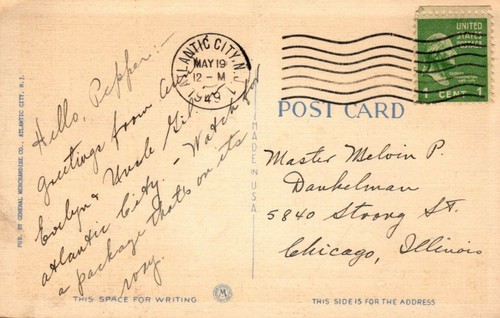 Hello, Pepper:-
Greetings from Au
Evelyn & Uncle Gil
Atlantic City. - Watch for
a package that's on its
way.
PUB. BY GENERAL MERCHANDISE CO., ATLANTIC CITY, N.J.
THIS SPACE FOR WRITING
M
MADE IN U.S.A.
ATLANTIC CITY, N.J.
MAY 19
12-M
1949
1
UNITED
STATES
POSTAGE
1 CENT 1
POST CARD
Master Melvin P.
Dankelman
5840 Strong St.
Chicago, Illinois
THIS SIDE IS FOR THE ADDRESS